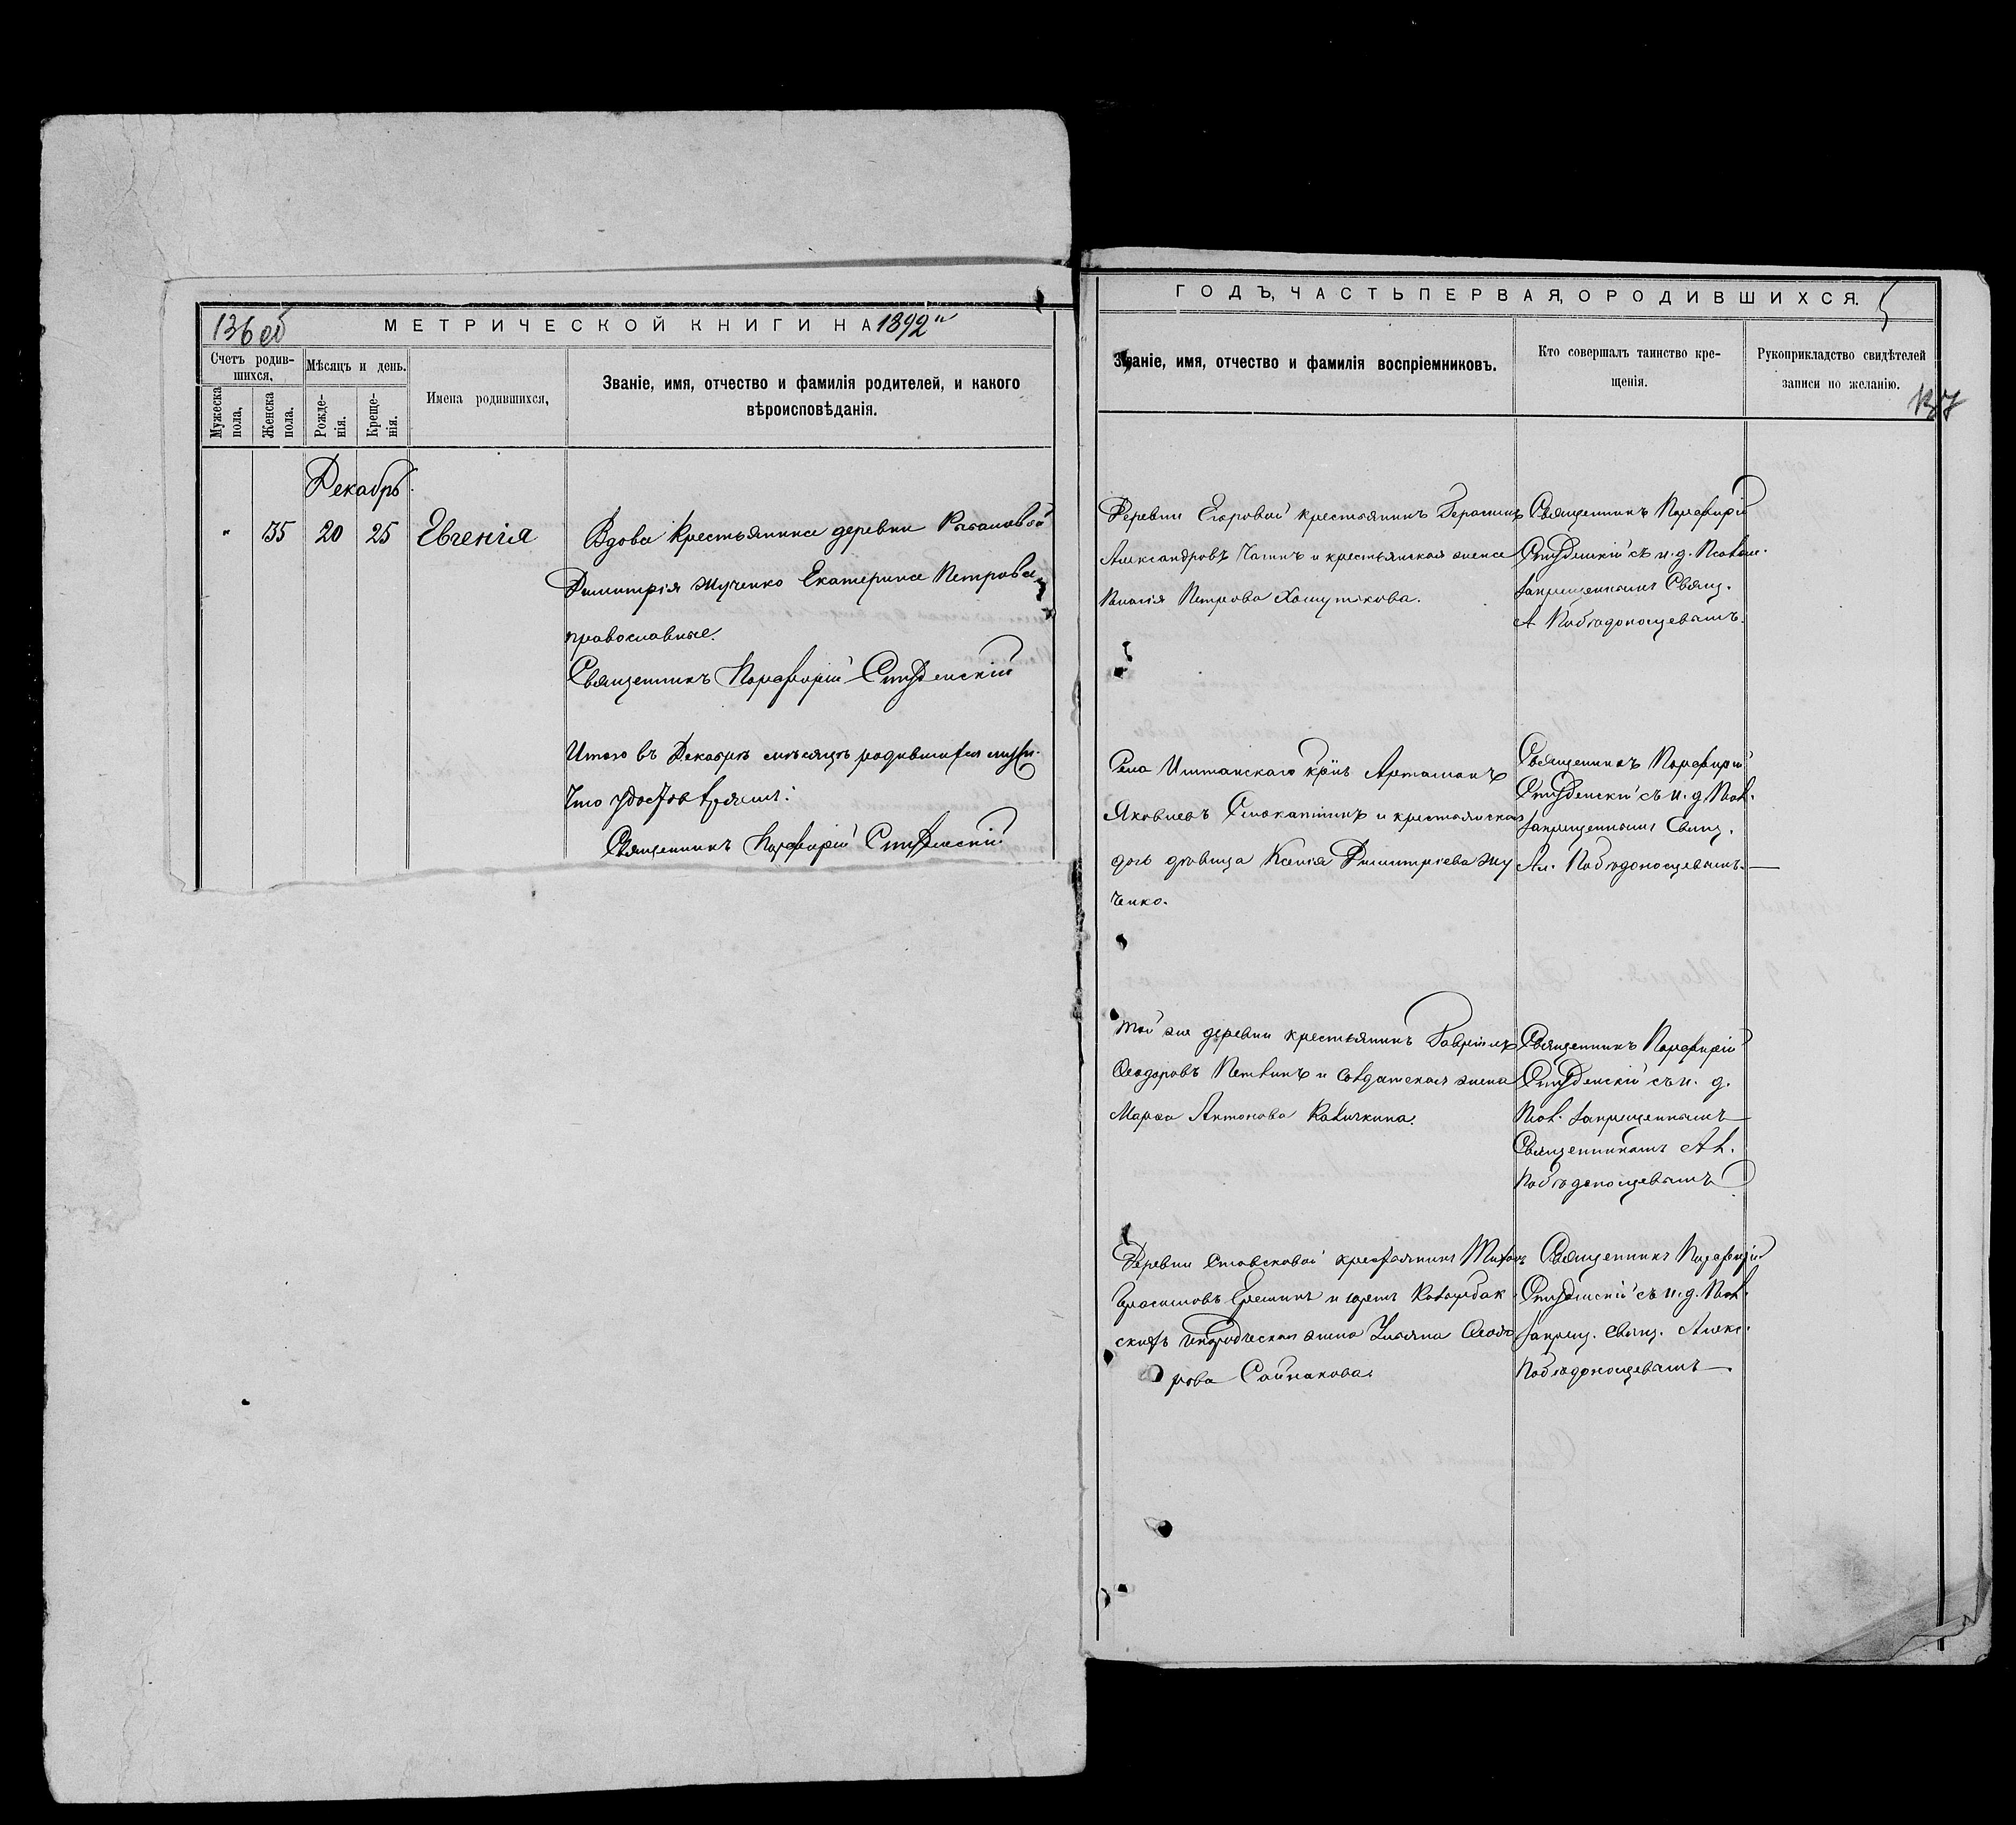 136 об
МЕТРИЧЕСКОЙ КНИГИ НА 1892й
Счетъ родив-
шихся,
Мѣсяцъ и день.
Мужеска
пола,
Женска
пола.
Рожде-
нія.
Креще-
нія.
Имена родившихся,
Званіе, имя, отчество и фамилія родителей, и какого
вѣроисповѣданія.
Декабрь.
" 35 20 25 Евгенія
Вдова крестьянина деревни
Димитрія Жученко Екатерина Петрова,
православные.
Священникъ Порфирій Студенскій
Итого въ Декабрѣ мѣсяцѣ родившихся
Что удостовѣряемъ:
Священникъ Порфирій Студенскій
ГОДЪ, ЧАСТЬ ПЕРВАЯ, О РОДИВШИХСЯ.
5
Званіе, имя, отчество и фамилія воспріемниковъ.
Кто совершалъ таинство кре-
щенія.
Рукоприкладство свидѣтелей
записи по желанію.
137
Деревни Егоровой крестьянинъ Герасимъ
Александровъ Чагинъ и крестьянская жена
Петрова Хомутикова.
Священникъ Порфирій
Студенскій съ и. д. Псалом.
запрещеннымъ Свящ.
А. Побѣдоносцевымъ.
Села Иштанскаго Артамонъ
Яковлевъ и крестьянская
дочь дѣвица Ксенія Димитріева Жу
ченко.
Священникъ Порфирій
Студенскій съ и. д. Псал.
запрещеннымъ Свящ.
Ал. Побѣдоносцевымъ.
Той же деревни крестьянинъ Гавріилъ
Ѳеодоровъ и солдатская жена
Марѳа Антонова Каличкина.
Священникъ Порфирій
Студенскій съ и. д.
Псал. запрещеннымъ
Священникомъ Ал.
Побѣдоносцевымъ
Деревни крестьянинъ Тихонъ
Герасимовъ Ерешинъ и
инородческая жена Ульяна Ѳеодо
рова Сайнакова.
Священникъ Порфирій
Студенскій съ и. д. Псал.
запрещ. свящ. Алек.
Побѣдоносцевымъ.